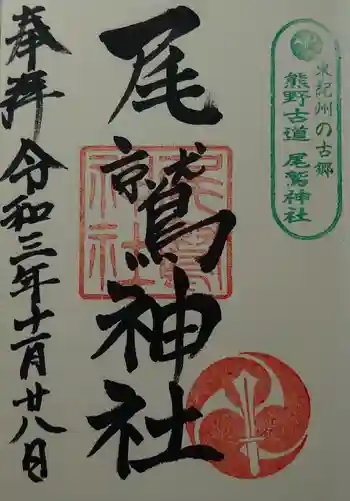 東紀州の古郷
熊野古道 尾鷲神社
尾鷲神社
尾鷲神社
奉拝 令和三年十一月廿八日